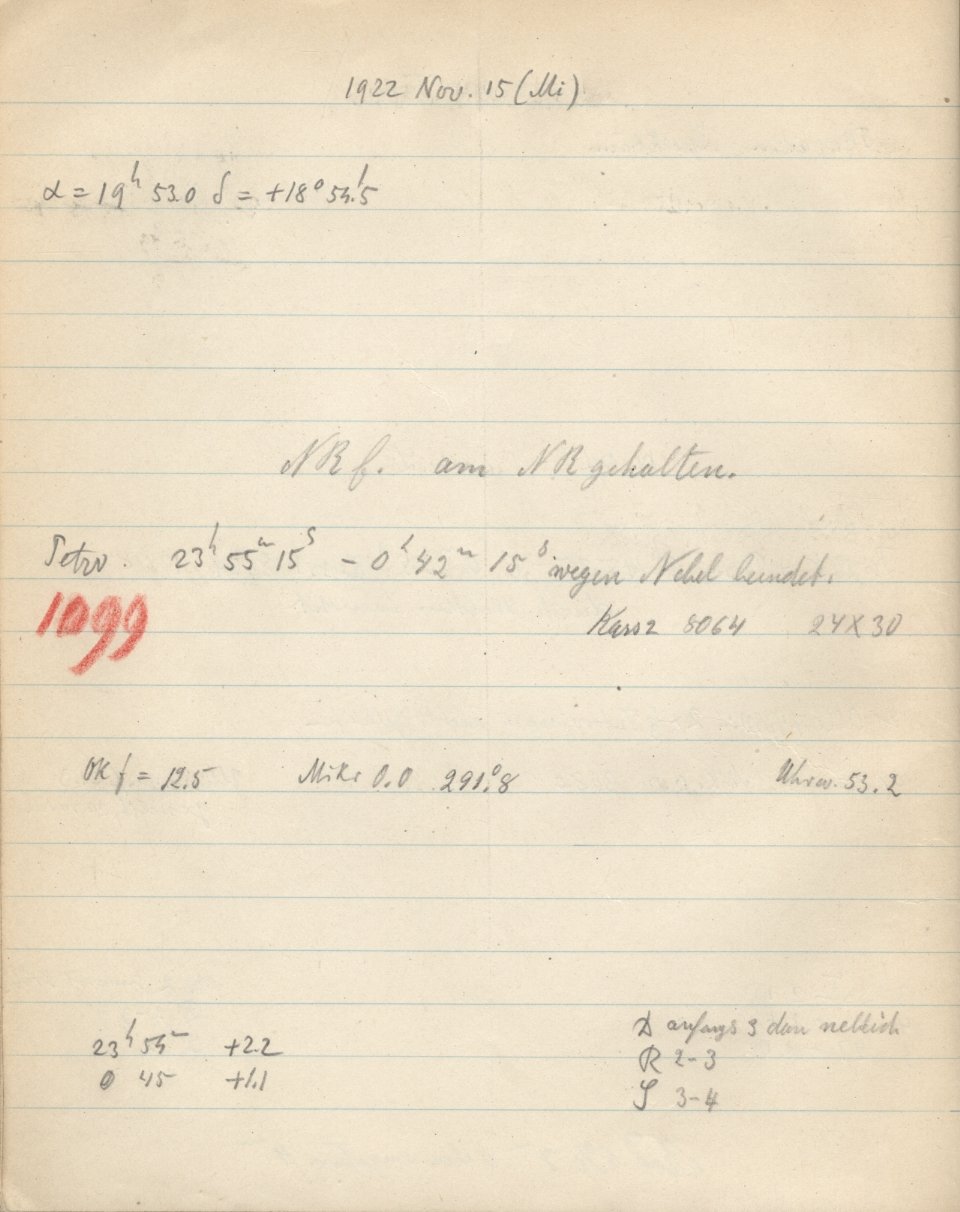 1922 Nov. 15 (Mi)
α = 19h 53.0 δ = +18° 54.'5
NR f. am NR gehalten.
Tetra. 23h 55m 15s – 0h 42m 15s wegen Nebel beendet.
1099
Kass 2 8064 24 X 30
OK f = 12.5 Mikr 0.0 291.°8 Uhrw. 53.2
23h 54m +2.2
0 45 +1.1
D anfangs 3 dan neblich
R 2–3
S 3–4